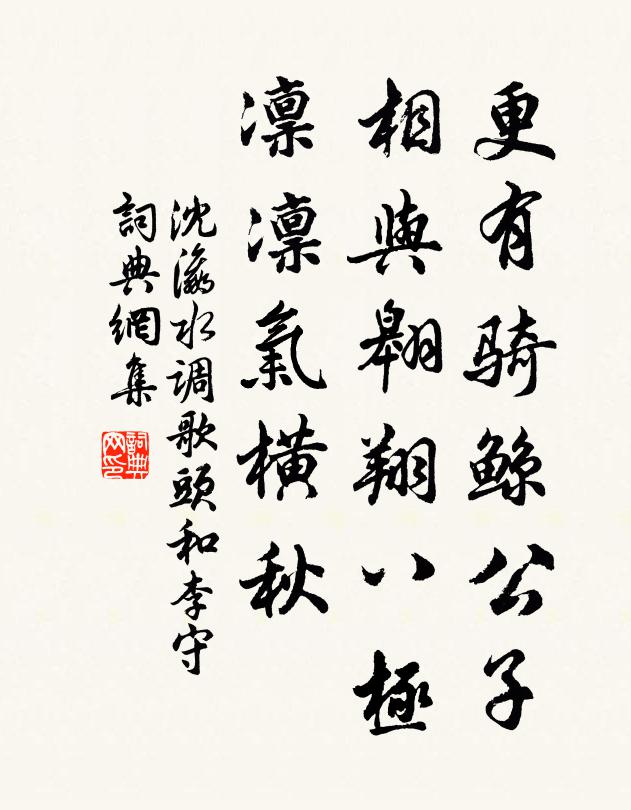 更有骑鲸公子
相與翱翔八極
凛凛氣橫秋
沈瀛水调歌頭和李守
詞典網集
詞典網印